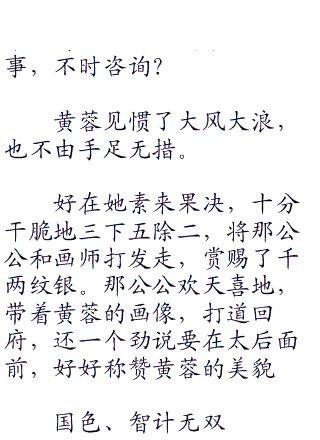 事，不时咨询？
黄蓉见惯了大风大浪，
也不由手足无措。
好在她素来果决，十分
干脆地三下五除二，将那公
公和画师打发走，赏赐了千
两纹银。那公公欢天喜地，
带着黄蓉的画像，打道回
府，还一个劲说要在太后面
前，好好称赞黄蓉的美貌
国色、智计无双